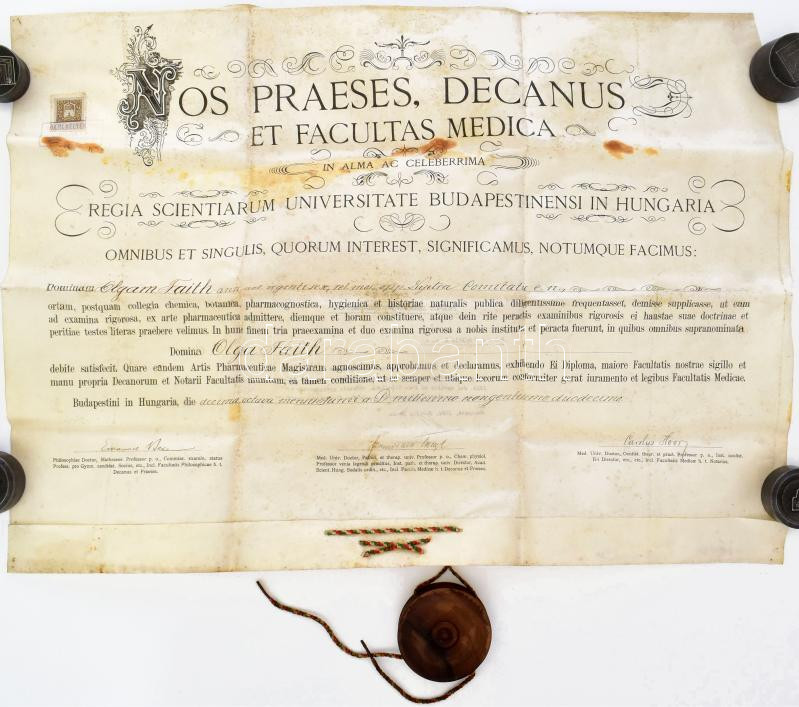 NOS PRAESES, DECANUS
ET FACULTAS MEDICA
IN ALMA AC CELEBERRIMA
REGIA SCIENTIARUM UNIVERSITATE BUDAPESTINENSI IN HUNGARIA
OMNIBUS ET SINGULIS, QUORUM INTEREST, SIGNIFICAMUS, NOTUMQUE FACIMUS:
Dominam Olgam Faith
ortam, postquam collegia chemica, botanica, pharmacognostica, hygienica et historiae naturalis publica diligentissime frequentasset, demisse supplicasse, ut eam
ad examina rigorosa, ex arte pharmaceutica admittere, diemque et horam constituere, atque dein rite peractis examinibus rigorosis ei haustae suae doctrinae et
peritiae testes literas praebere velimus. In hunc finem tria praeexamina et duo examina rigorosa a nobis instituta et peracta fuerunt, in quibus omnibus supranominata
Domina Olga Faith
debite satisfecit. Quare eandem Artis Pharmaceuticae Magistram agnoscimus, approbamus et declaramus, exhibendo Ei Diploma, maiore Facultatis nostrae sigillo et
manu propria Decanorum et Notarii Facultatis munitum, ea tamen conditione, ut se semper et ubique locorum conformiter gerat iuramento et legibus Facultatis Medicae.
Budapestini in Hungaria, die decima octava mensis a D. millesimo nongentesimo duodecimo
Philosophiae Doctor, Matheseos Professor p. o., Commiss. examin. status
Profess. pro Gymn. candidat. Socius, etc., Incl. Facultatis Philosophicae h. t.
Decanus et Praeses.
Med. Univ. Doctor, Pathol. et therap. univ. Professor p. o., Chem. physiol.
Professor venia legendi ornatus, Inst. path. et therap. univ. Director, Acad.
Scient. Hung. Sodalis ordin., etc., Incl. Facult. Medicae h. t. Decanus et Praeses.
Carolus Hoor
Med. Univ. Doctor, Oculist. theor. et pract. Professor p. o., Inst. oculist.
Director, etc., etc., Incl. Facultatis Medicae h. t. Notarius.
darabanth